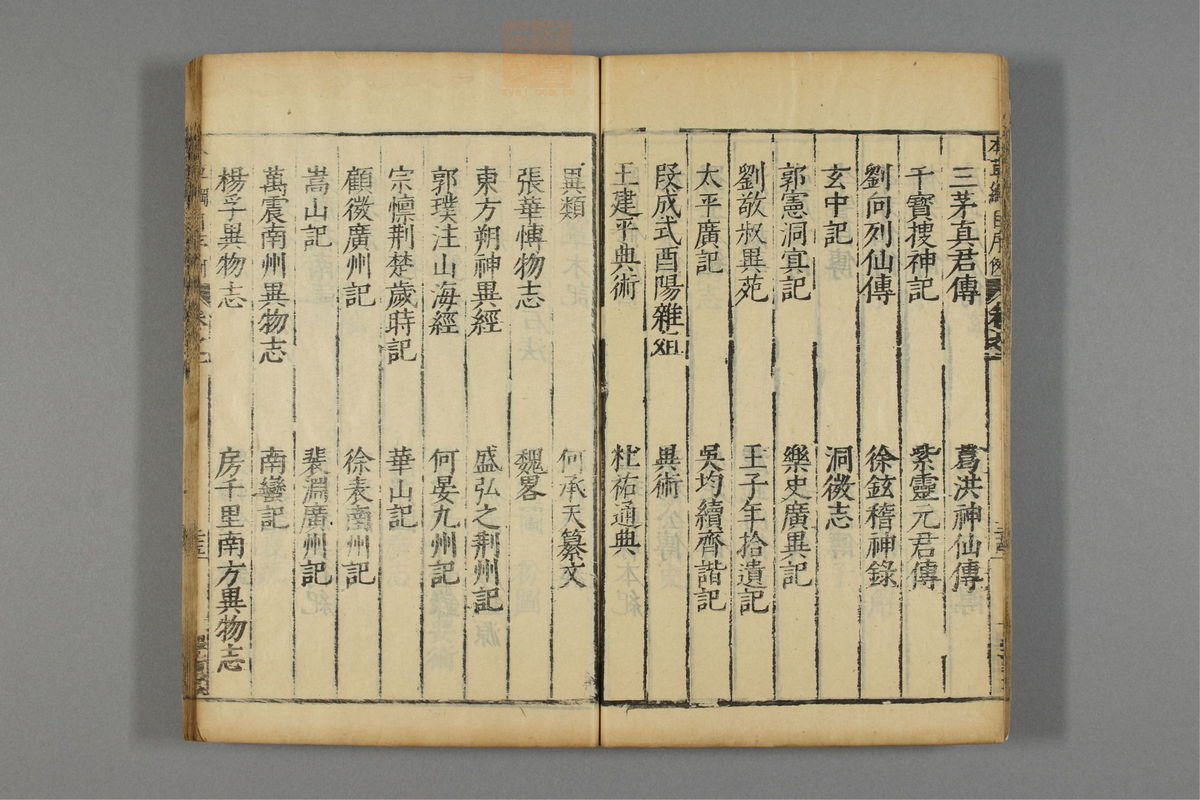 三茅真君傳　葛洪神仙傳
干寶搜神記　紫靈元君傳
劉向列仙傳　徐鉉稽神錄
玄中記　洞微志
郭憲洞冥記　樂史廣異記
劉敬叔異苑　王子年拾遺記
太平廣記　吳均續齊諧記
段成式酉陽雜俎　異術
王建平典術　杜祐通典
異類　何承天纂文
張華博物志　魏畧
東方朔神異經　盛弘之荆州記
郭璞注山海經　何晏九州記
宗懍荆楚歲時記　華山記
顧微廣州記　徐表南州記
嵩山記　裴淵廣州記
萬震南州異物志　南蠻記
楊孚異物志　房千里南方異物志